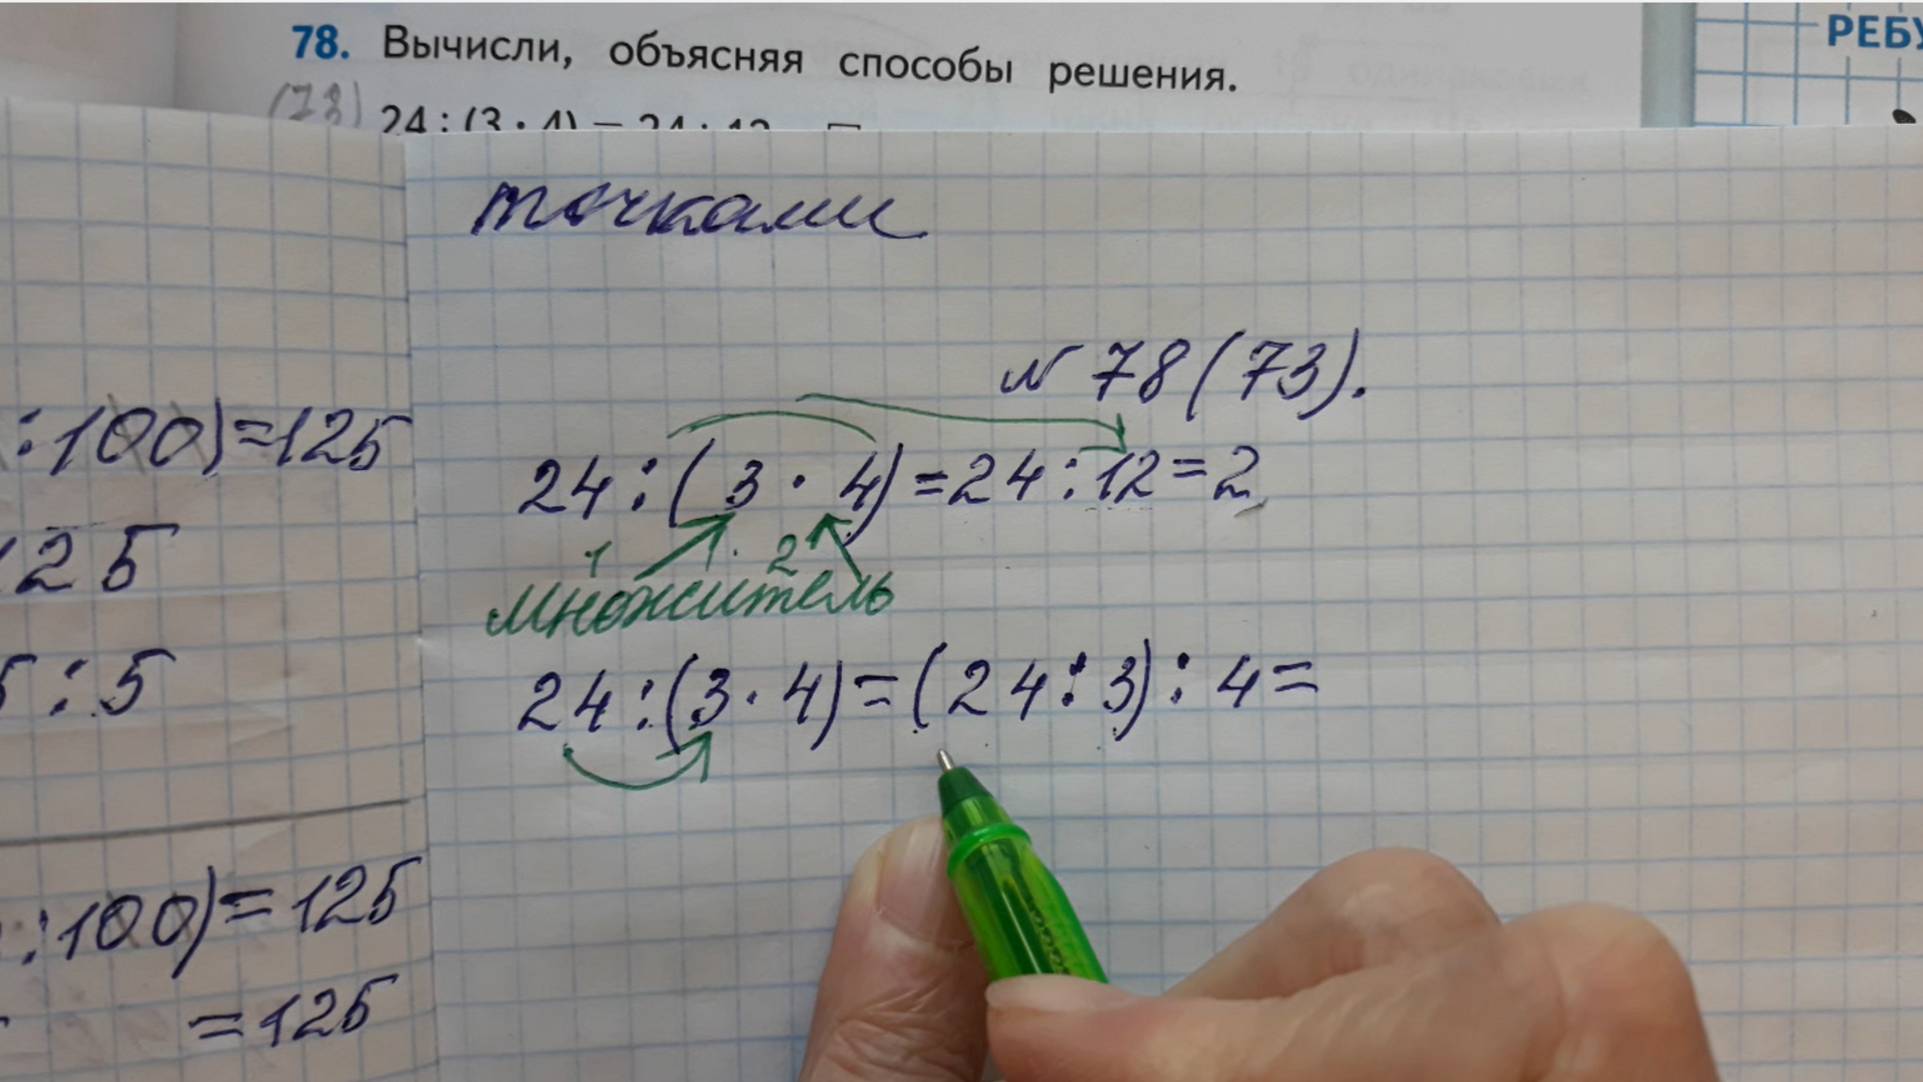 78. Вычисли, объясняя способы решения.
РЕБУ
(73)
24 : (3 · 4) = 24 : 12
точками
N 78 (73).
:100)=125
24:(3·4)=24:12=2
1 2
множитель
125
:5
24:(3·4)=(24:3):4=
:100)=125
=125